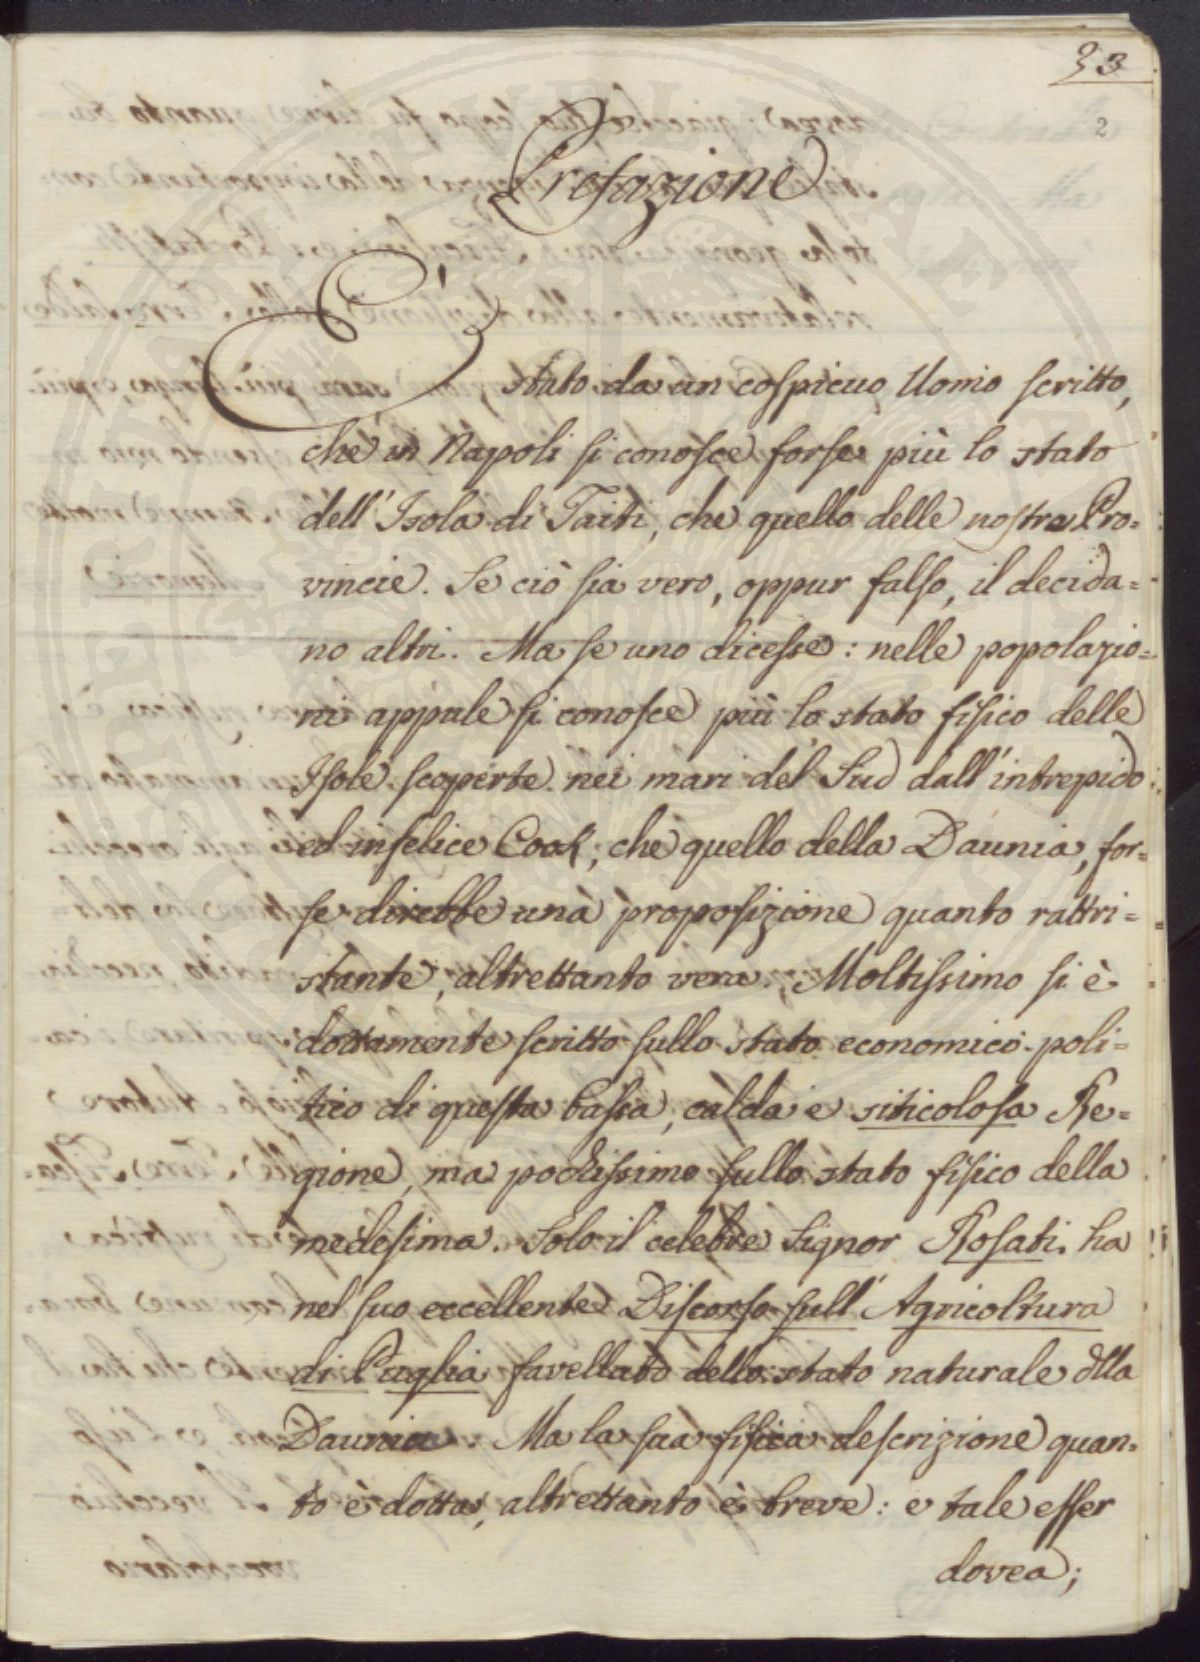 33
2
Prefazione.
E' stato da un cospicuo Uomo scritto,
che in Napoli si conosce forse più lo stato
dell'Isola di Taiti, che quello delle nostre Pro=
vincie. Se ciò sia vero, oppur falso, il decida=
no altri. Ma se uno dicesse: nelle popolazio=
ni appule si conosce più lo stato fisico delle
Isole scoperte nei mari del Sud dall'intrepido
ed infelice Cook, che quello della Daunia, for=
se direbbe una proposizione quanto rattri=
stante, altrettanto vera. Moltissimo si è
dottamente scritto sullo stato economico-poli=
tico di questa bassa, calda e siticolosa Re=
gione, ma pochissimo sullo stato fisico della
medesima. Solo il celebre Signor Rosati ha
nel suo eccellente Discorso sull'Agricoltura
di Puglia favellato dello stato naturale dlla
Daunia. Ma la sua fisica descrizione quan=
to è dotta, altrettanto è breve: e tale esser
dovea;